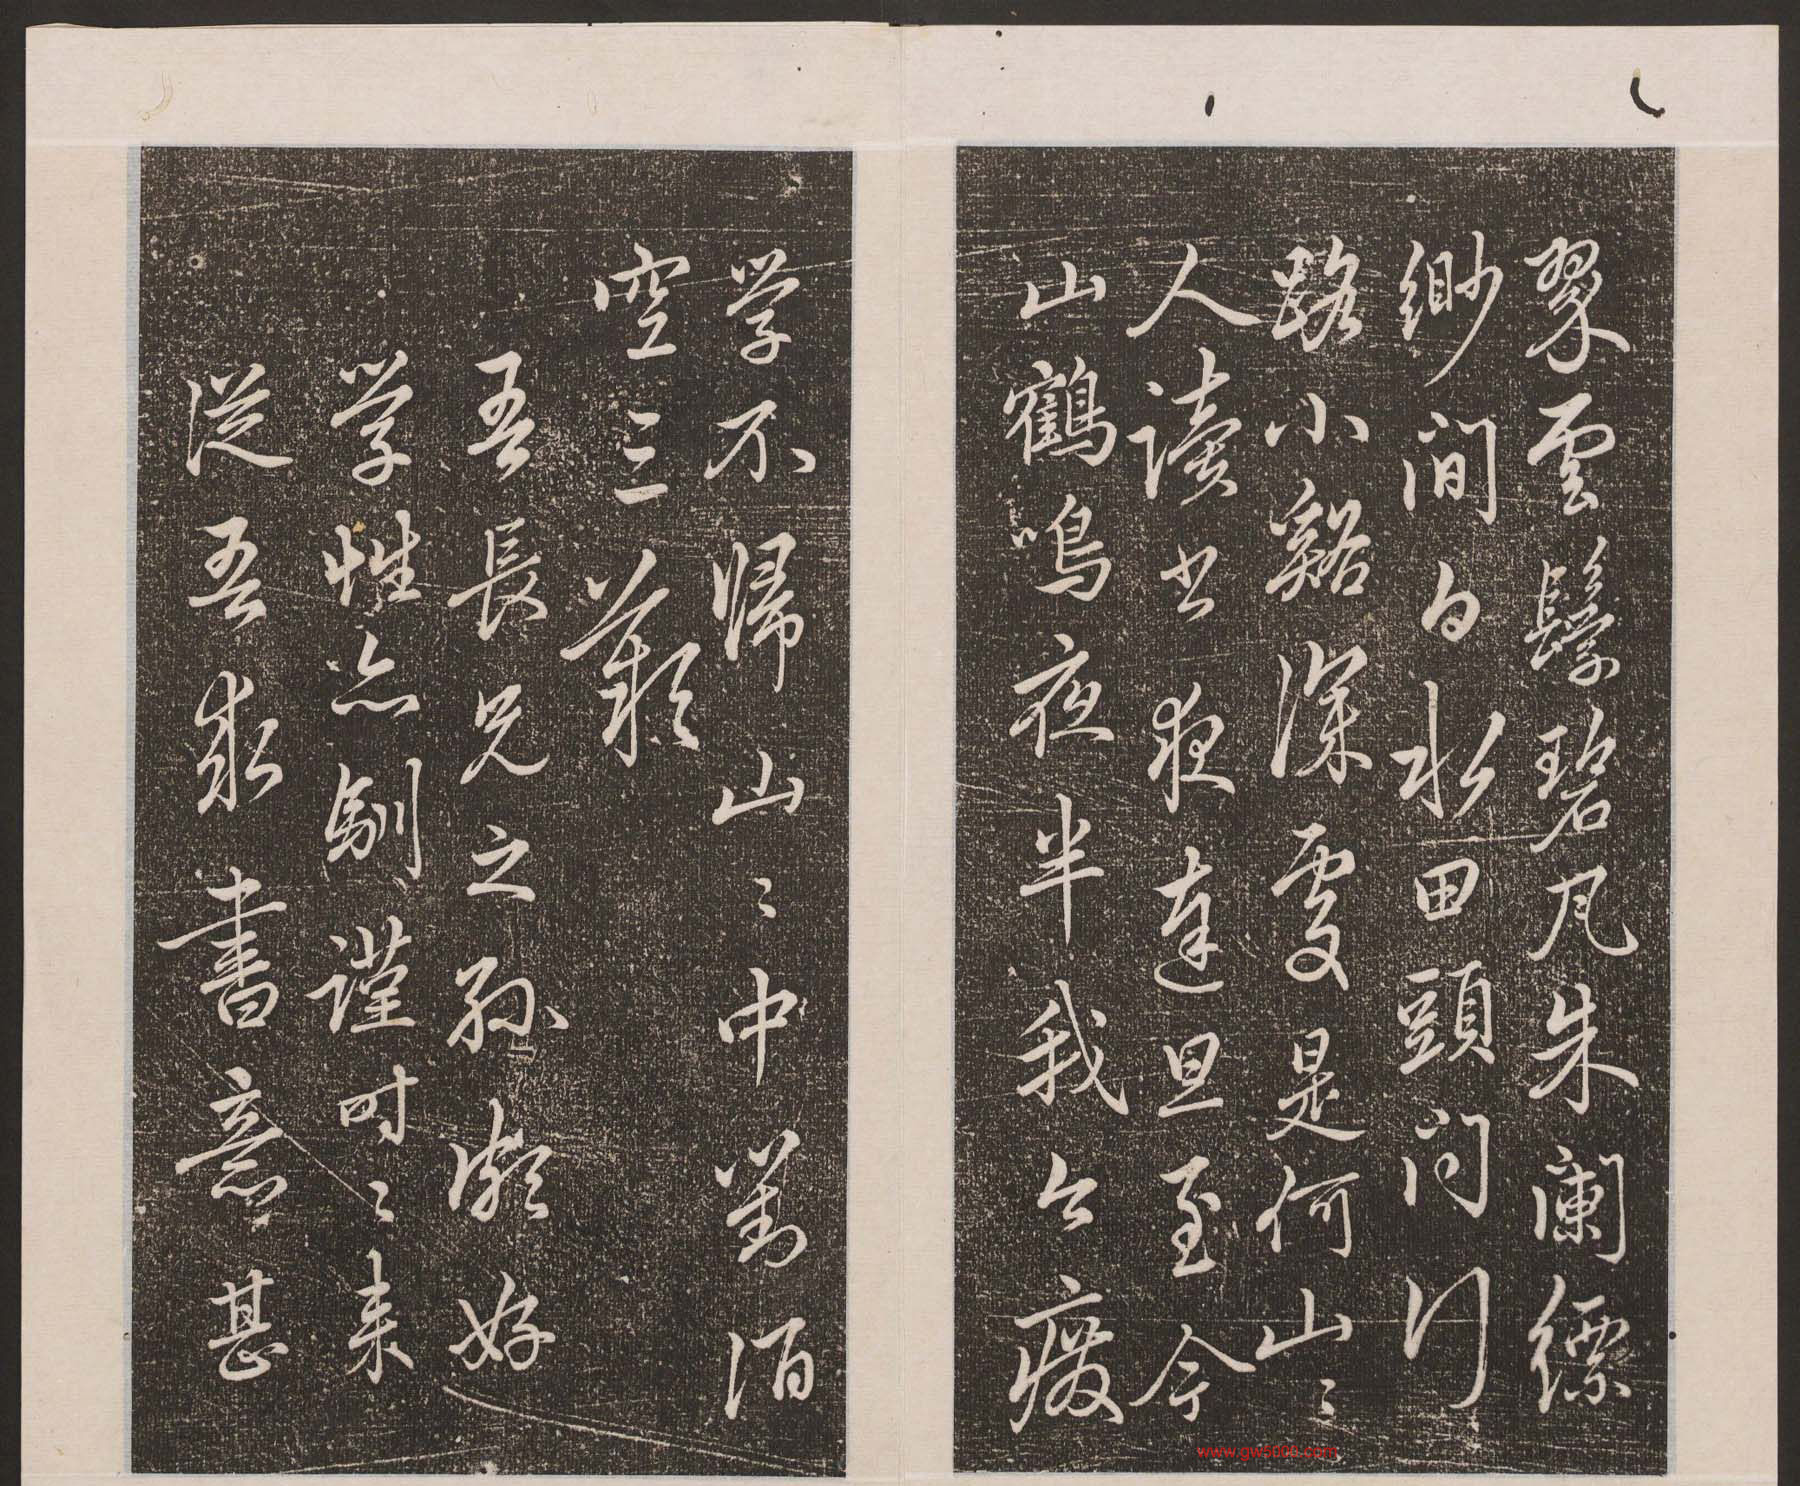 翠雲鬟碧瓦朱闌縹
緲間白水田頭問行
路小谿深處是何山〻
人讀書夜達旦至今
山鶴鳴夜半我今廢
學不歸山〻中對酒
空三歎
吾長兄之孫好
學性亦馴謹時〻來
從吾求書意甚
www.gw5000.com